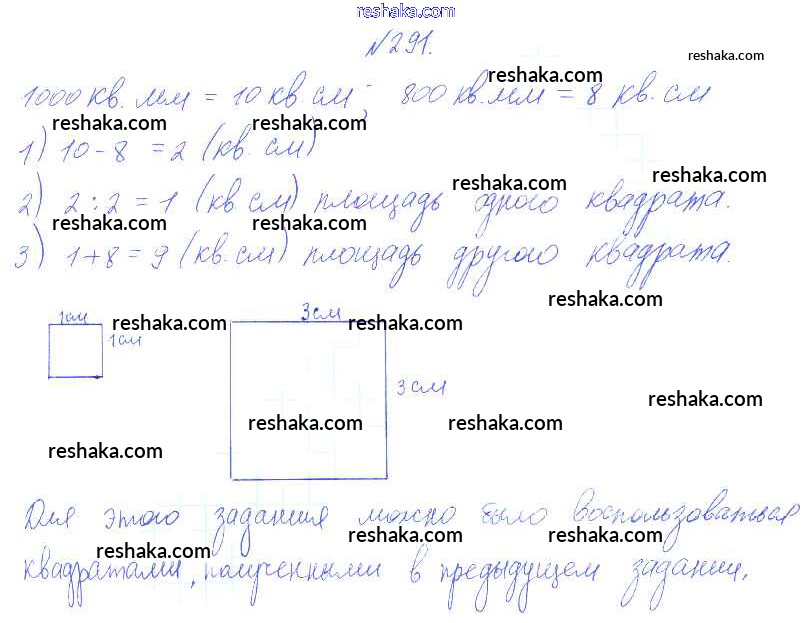 reshaka.com
№291.
reshaka.com
reshaka.com
1000 кв.мм = 10 кв см; 800 кв.мм = 8 кв.см
reshaka.com reshaka.com
1) 10 - 8 = 2 (кв.см)
reshaka.com reshaka.com
2) 2 : 2 = 1 (кв.см) площадь одного квадрата.
reshaka.com reshaka.com
3) 1 + 8 = 9 (кв.см) площадь другого квадрата.
reshaka.com
1см 3см
reshaka.com reshaka.com
1см
3см
reshaka.com
reshaka.com reshaka.com
reshaka.com
Для этого задания можно было воспользоваться
reshaka.com reshaka.com
квадратами, полученными в предыдущем задании.
reshaka.com reshaka.com